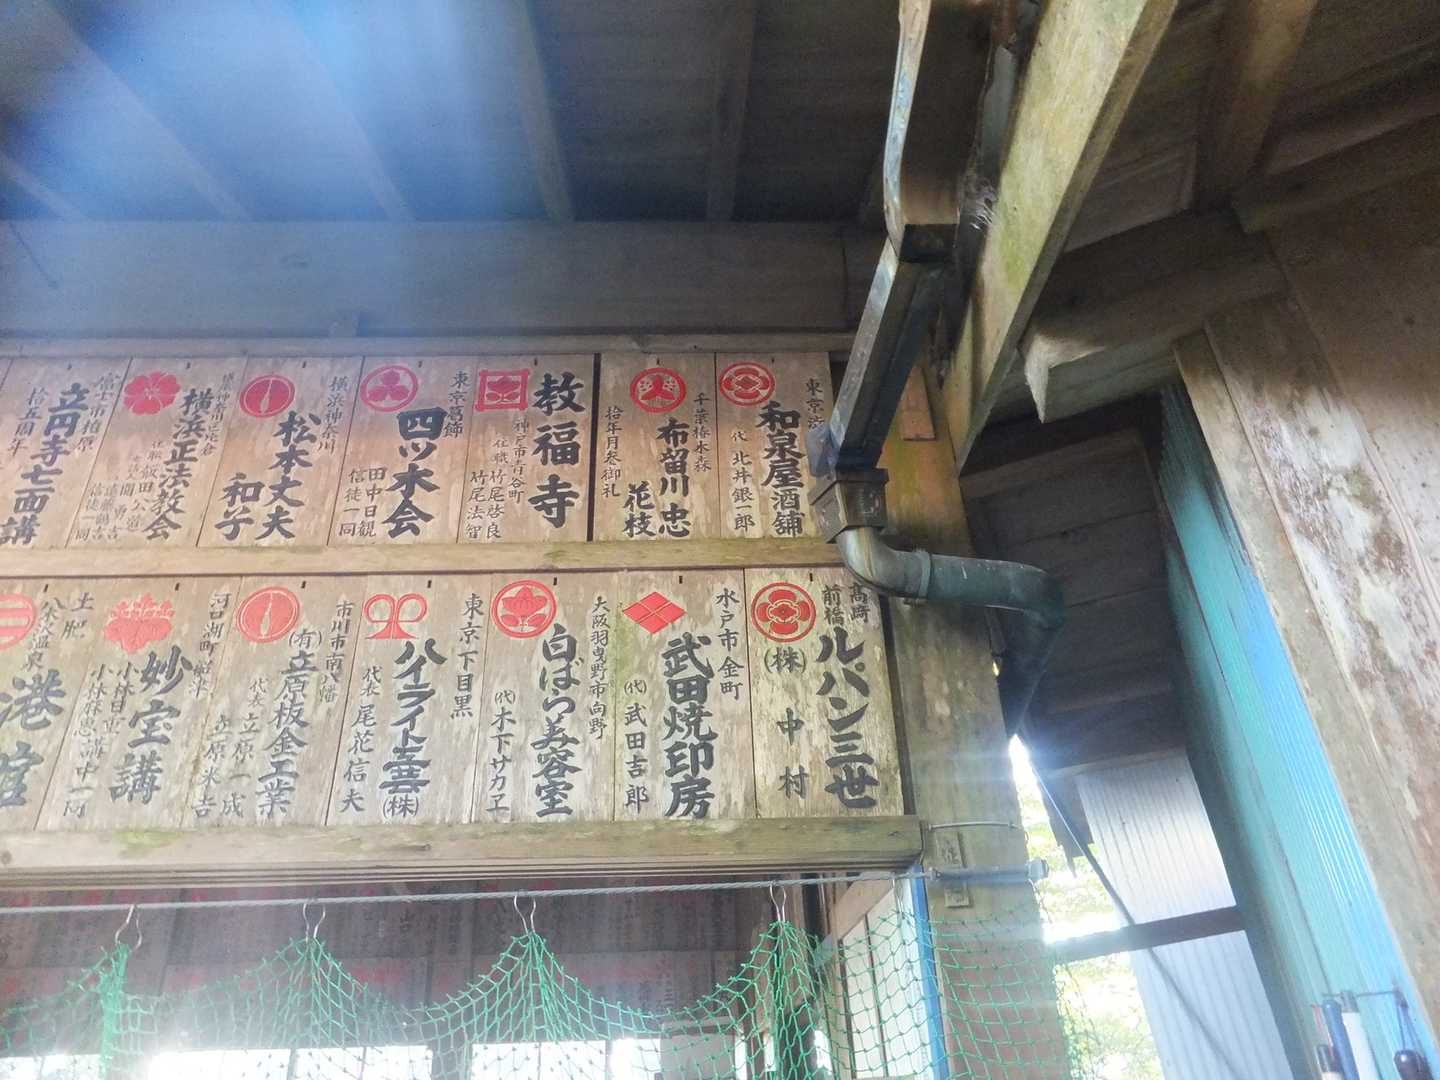 東京渋
和泉屋酒舗
代 北井銀一郎
千葉椿木森
布留川忠
花枝
拾年月参御礼
教福寺
神戸市青谷町
住職 竹尾啓良
竹尾法智
東京葛飾
四ツ木会
田中日観
信徒一同
横浜神奈川
松本丈夫
和子
横浜正法教会
飯田公宿
信徒一同
富士市植原
立円寺七面講
拾五周年
高崎
前橋
ルパン三世
(株)中村
水戸市金町
武田焼印房
(代)武田吉郎
大阪羽曳野市向野
白ばら美容室
(代)木下サカヱ
東京下目黒
ハイライト工芸(株)
代表 尾花信夫
市川市南八幡
(有)立原板金工業
代表 立原一成
立原米吉
河口湖町
妙宝講
講中一同
土肥
温泉
港館